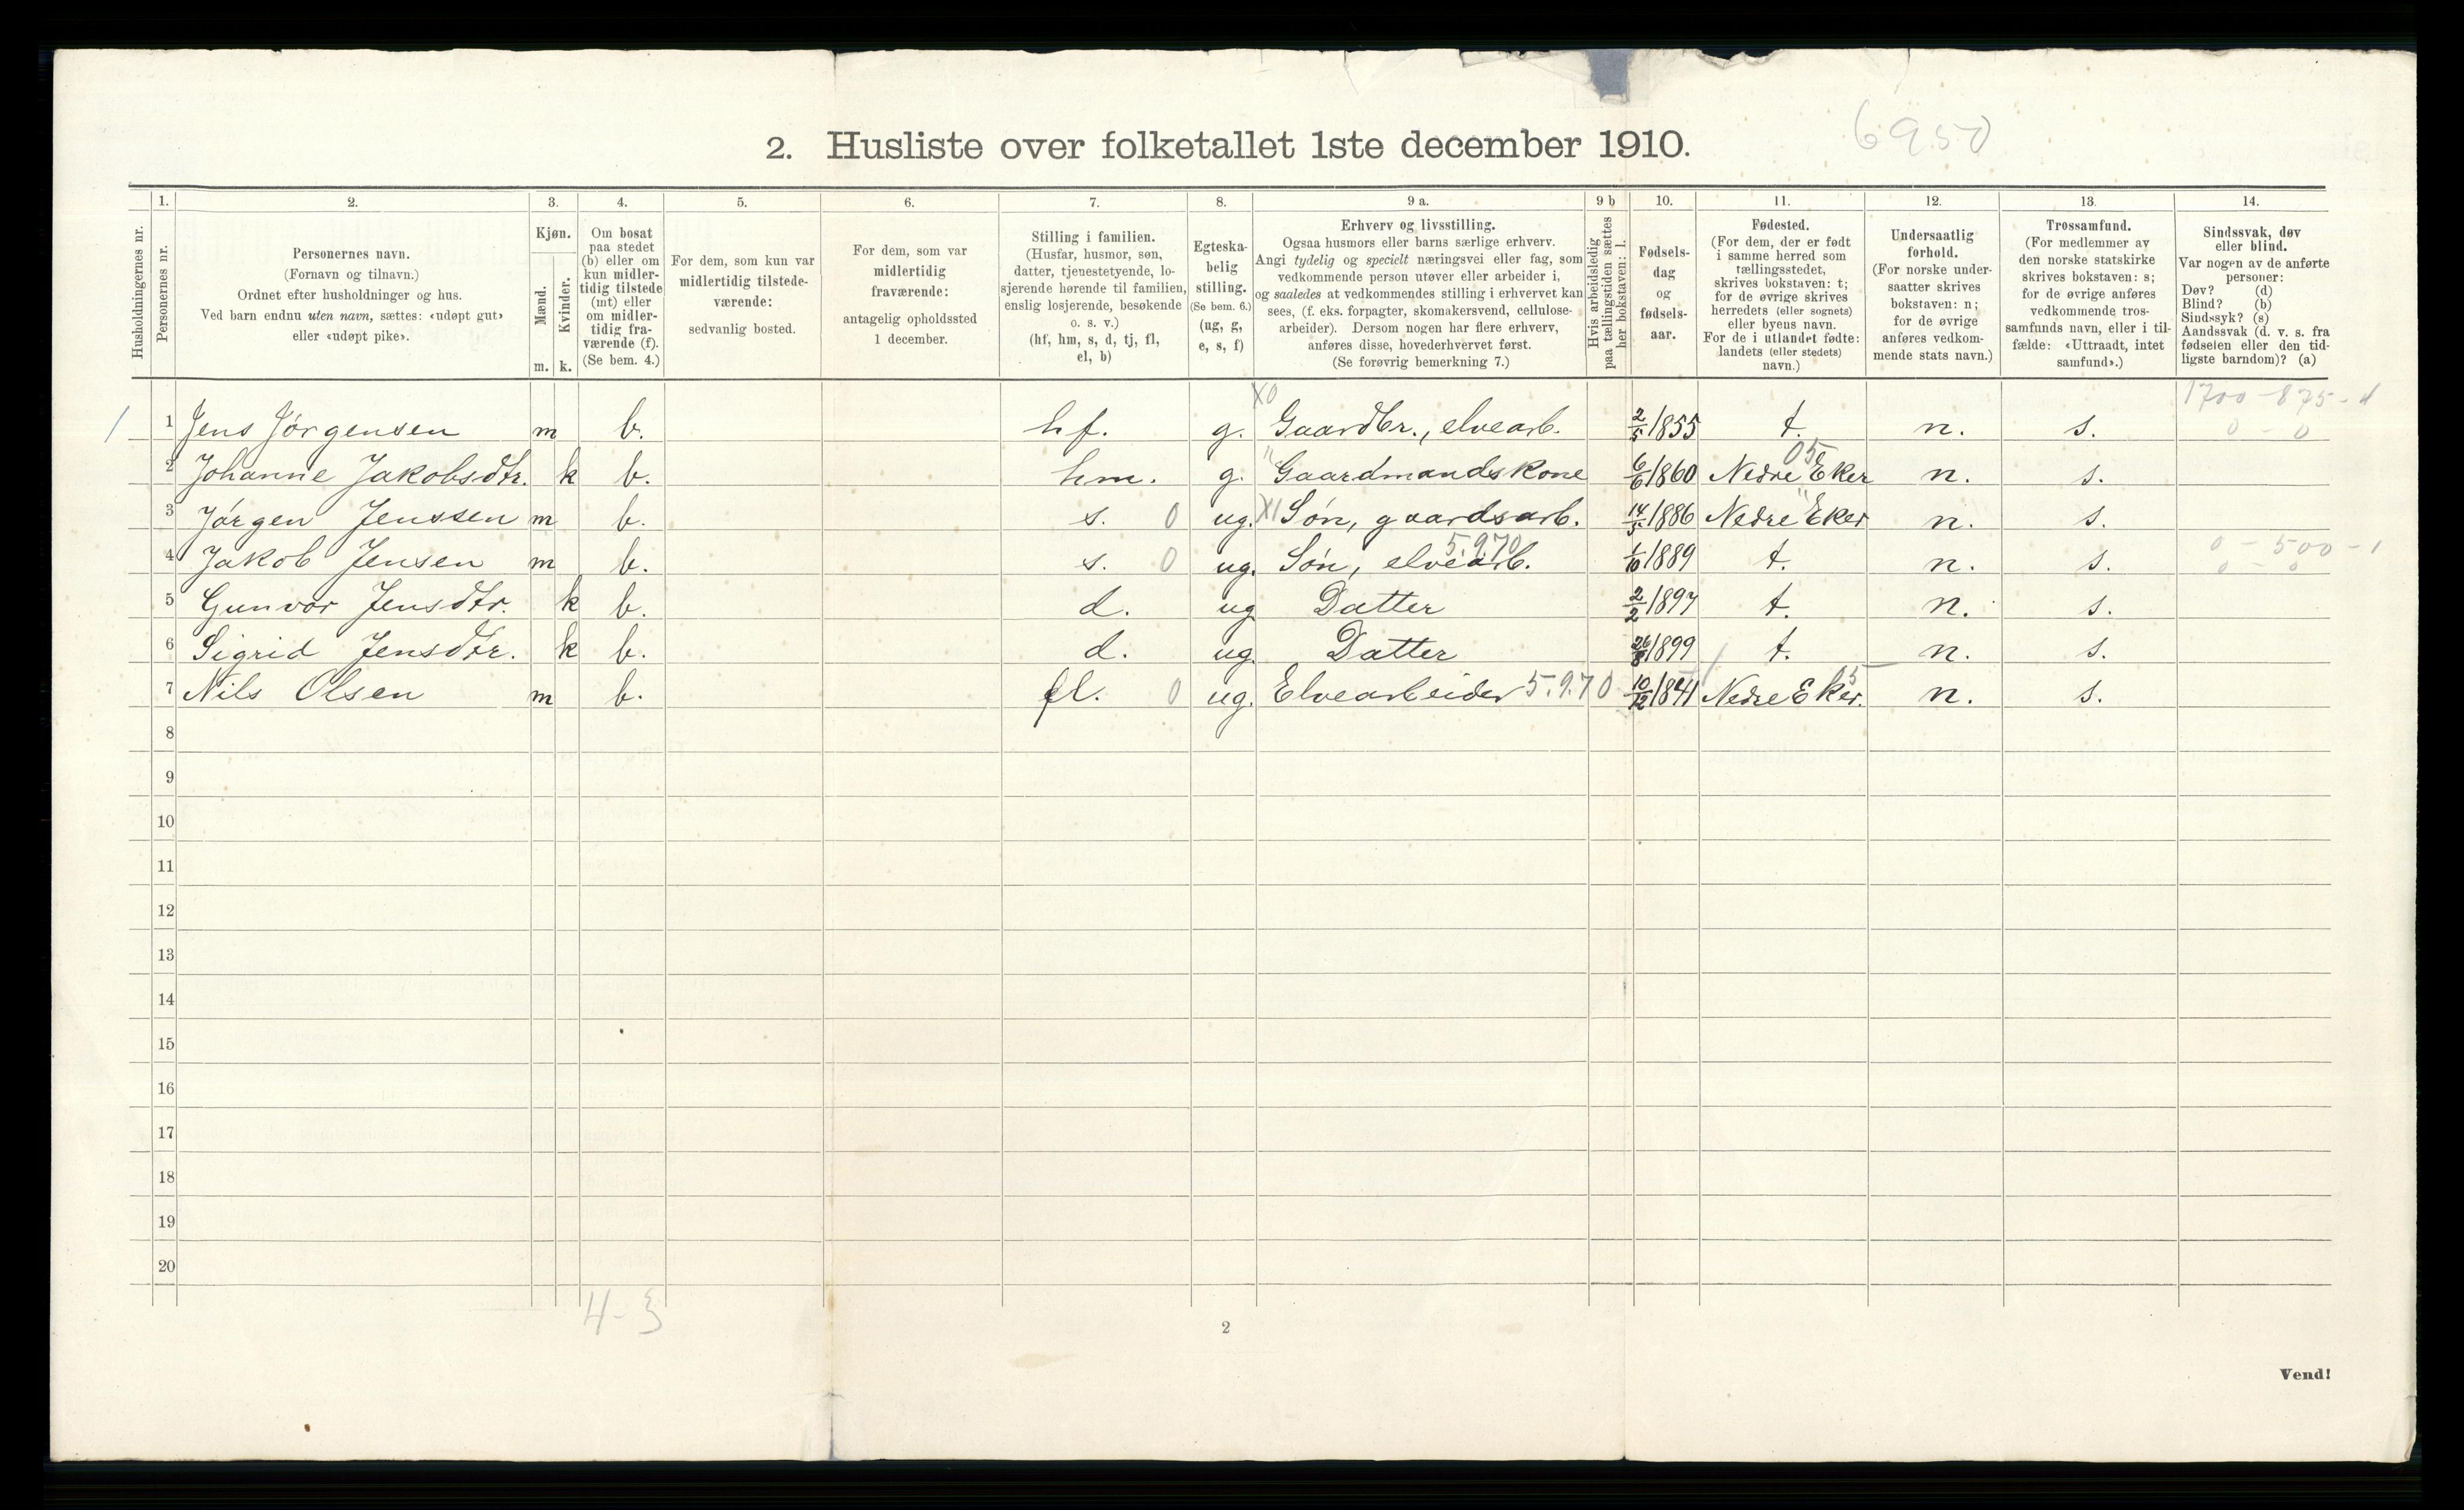 6950
2. Husliste over folketallet 1ste december 1910.
Husholdningernes nr.
1.
Personernes nr.
2.
Personernes navn.
(Fornavn og tilnavn.)
Ordnet efter husholdninger og hus.
Ved barn endnu uten navn, sættes: «udøpt gut»
eller «udøpt pike».
3.
Kjøn.
Mænd.
m.
Kvinder.
k.
4.
Om bosat
paa stedet
(b) eller om
kun midler-
tidig tilstede
(mt) eller
om midler-
tidig fra-
værende (f).
(Se bem. 4.)
5.
For dem, som kun var
midlertidig tilstede-
værende:
sedvanlig bosted.
6.
For dem, som var
midlertidig
fraværende:
antagelig opholdssted
1 december.
7.
Stilling i familien.
(Husfar, husmor, søn,
datter, tjenestetyende, lo-
sjerende hørende til familien,
enslig losjerende, besøkende
o. s. v.)
(hf, hm, s, d, tj, fl,
el, b)
8.
Egteska-
belig
stilling.
(Se bem. 6.)
(ug, g,
e, s, f)
9 a.
Erhverv og livsstilling.
Ogsaa husmors eller barns særlige erhverv.
Angi tydelig og specielt næringsvei eller fag, som
vedkommende person utøver eller arbeider i,
og saaledes at vedkommendes stilling i erhvervet kan
sees, (f. eks. forpagter, skomakersvend, cellulose-
arbeider). Dersom nogen har flere erhverv,
anføres disse, hovederhvervet først.
(Se forøvrig bemerkning 7.)
9 b
Hvis arbeidsledig
paa tællingstiden sættes
her bokstaven: l.
10.
Fødsels-
dag
og
fødsels-
aar.
11.
Fødested.
(For dem, der er født
i samme herred som
tællingsstedet,
skrives bokstaven: t;
for de øvrige skrives
herredets (eller sognets)
eller byens navn.
For de i utlandet fødte:
landets (eller stedets)
navn.)
12.
Undersaatlig
forhold.
(For norske under-
saatter skrives
bokstaven: n;
for de øvrige
anføres vedkom-
mende stats navn.)
13.
Trossamfund.
(For medlemmer av
den norske statskirke
skrives bokstaven: s;
for de øvrige anføres
vedkommende tros-
samfunds navn, eller i til-
fælde: «Uttraadt, intet
samfund».)
14.
Sindssvak, døv
eller blind.
Var nogen av de anførte
personer:
Døv? (d)
Blind? (b)
Sindssyk? (s)
Aandssvak (d. v. s. fra
fødselen eller den tid-
ligste barndom)? (a)
X0 1700-875-
1 1 Jens Jørgensen m b. hf. g. Gaardbr., elvearb. 2/5 1855 t. n. s. 0 - 0
05
2 Johanne Jakobsdtr. k b. hm. g. " Gaardmandskone 6/6 1860 Nedre Eker n. s.
3 Jørgen Jenssen m b. s. 0 ug. X1 Søn, gaardsarb. 14/5 1886 Nedre " Eker n. s.
5.9.70 0 - 500 - 1
4 Jakob Jensen m b. s. 0 ug. Søn, elvearb. 1/10 1889 t. n. s. 0 - 0
5 Gunvor Jensdtr. k b. d. ug Datter 2/2 1897 t. n. s.
6 Sigrid Jensdtr. k b. d. ug. Datter 26/8 1899 t. n. s.
7 Nils Olsen m b. fl. 0 ug. Elvearbeider 5.9.70 10/12 1841 Nedre Eker. n. s.
8
9
10
11
12
13
14
15
16
17
18
19
20
4-3
2
Vend!